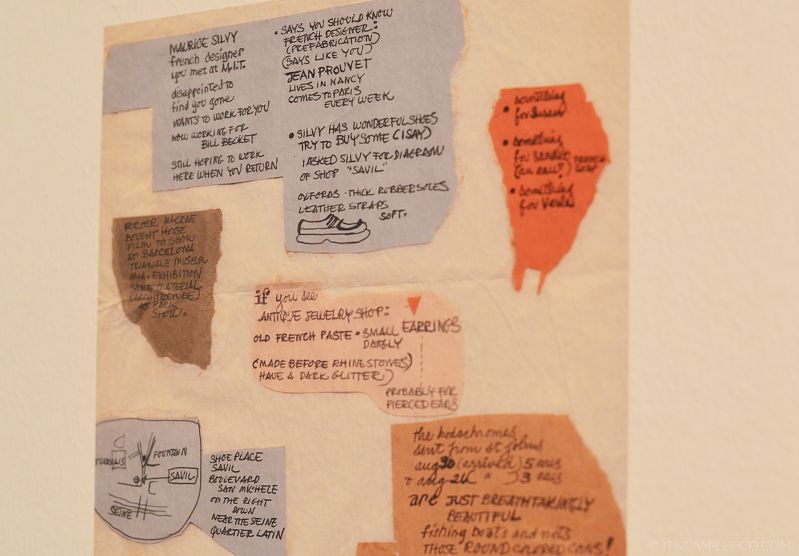 MAURICE SILVY
french designer
you met at M.I.T.
disappointed to
find you gone
WANTS TO WORK FOR YOU
NOW WORKING FOR
BILL BECKET
STILL HOPING TO WORK
HERE WHEN YOU RETURN
• SAYS YOU SHOULD KNOW
FRENCH DESIGNER:
(PREFABRICATION)
(SAYS LIKE YOU)
JEAN PROUVET
LIVES IN NANCY
COMES TO PARIS
EVERY WEEK
• SILVY HAS WONDERFUL SHOES
TRY TO BUY SOME (I SAY)
I ASKED SILVY FOR DIAGRAM
OF SHOP "SAVIL"
OXFORDS - THICK RUBBER SOLES
LEATHER STRAPS
SOFT.
• something
for Susan
• something
for Sandro
(an eau?)
• something
for
PORTER McCRAE
BOUGHT HOUSE
FILM TO SHOW
AT BARCELONA
TRIANALE MUSEUM
M.M.A. EXHIBITION
SAME MATERIAL
(ARCHITECTURE)
AS PARIS
SHOW.
if you see
ANTIQUE JEWELRY SHOP:
OLD FRENCH PASTE • SMALL EARRINGS
DANGLY
(MADE BEFORE RHINESTONES)
HAVE A DARK GLITTER)
PROBABLY FOR
PIERCED EARS
FOUNTAIN
SAVIL
SEINE
SHOE PLACE
SAVIL
BOULEVARD
SAN MICHELE
ON THE RIGHT
DOWN
NEAR THE SEINE
QUARTIER LATIN
the kodachromes
sent from st johns
aug 30 (arrived) 5
& aug 20 " ) 3
are JUST BREATHTAKINGLY
BEAUTIFUL
fishing boats and nets
THOSE ROUND COLORED CANS!
© ITSCAMILLECO.COM